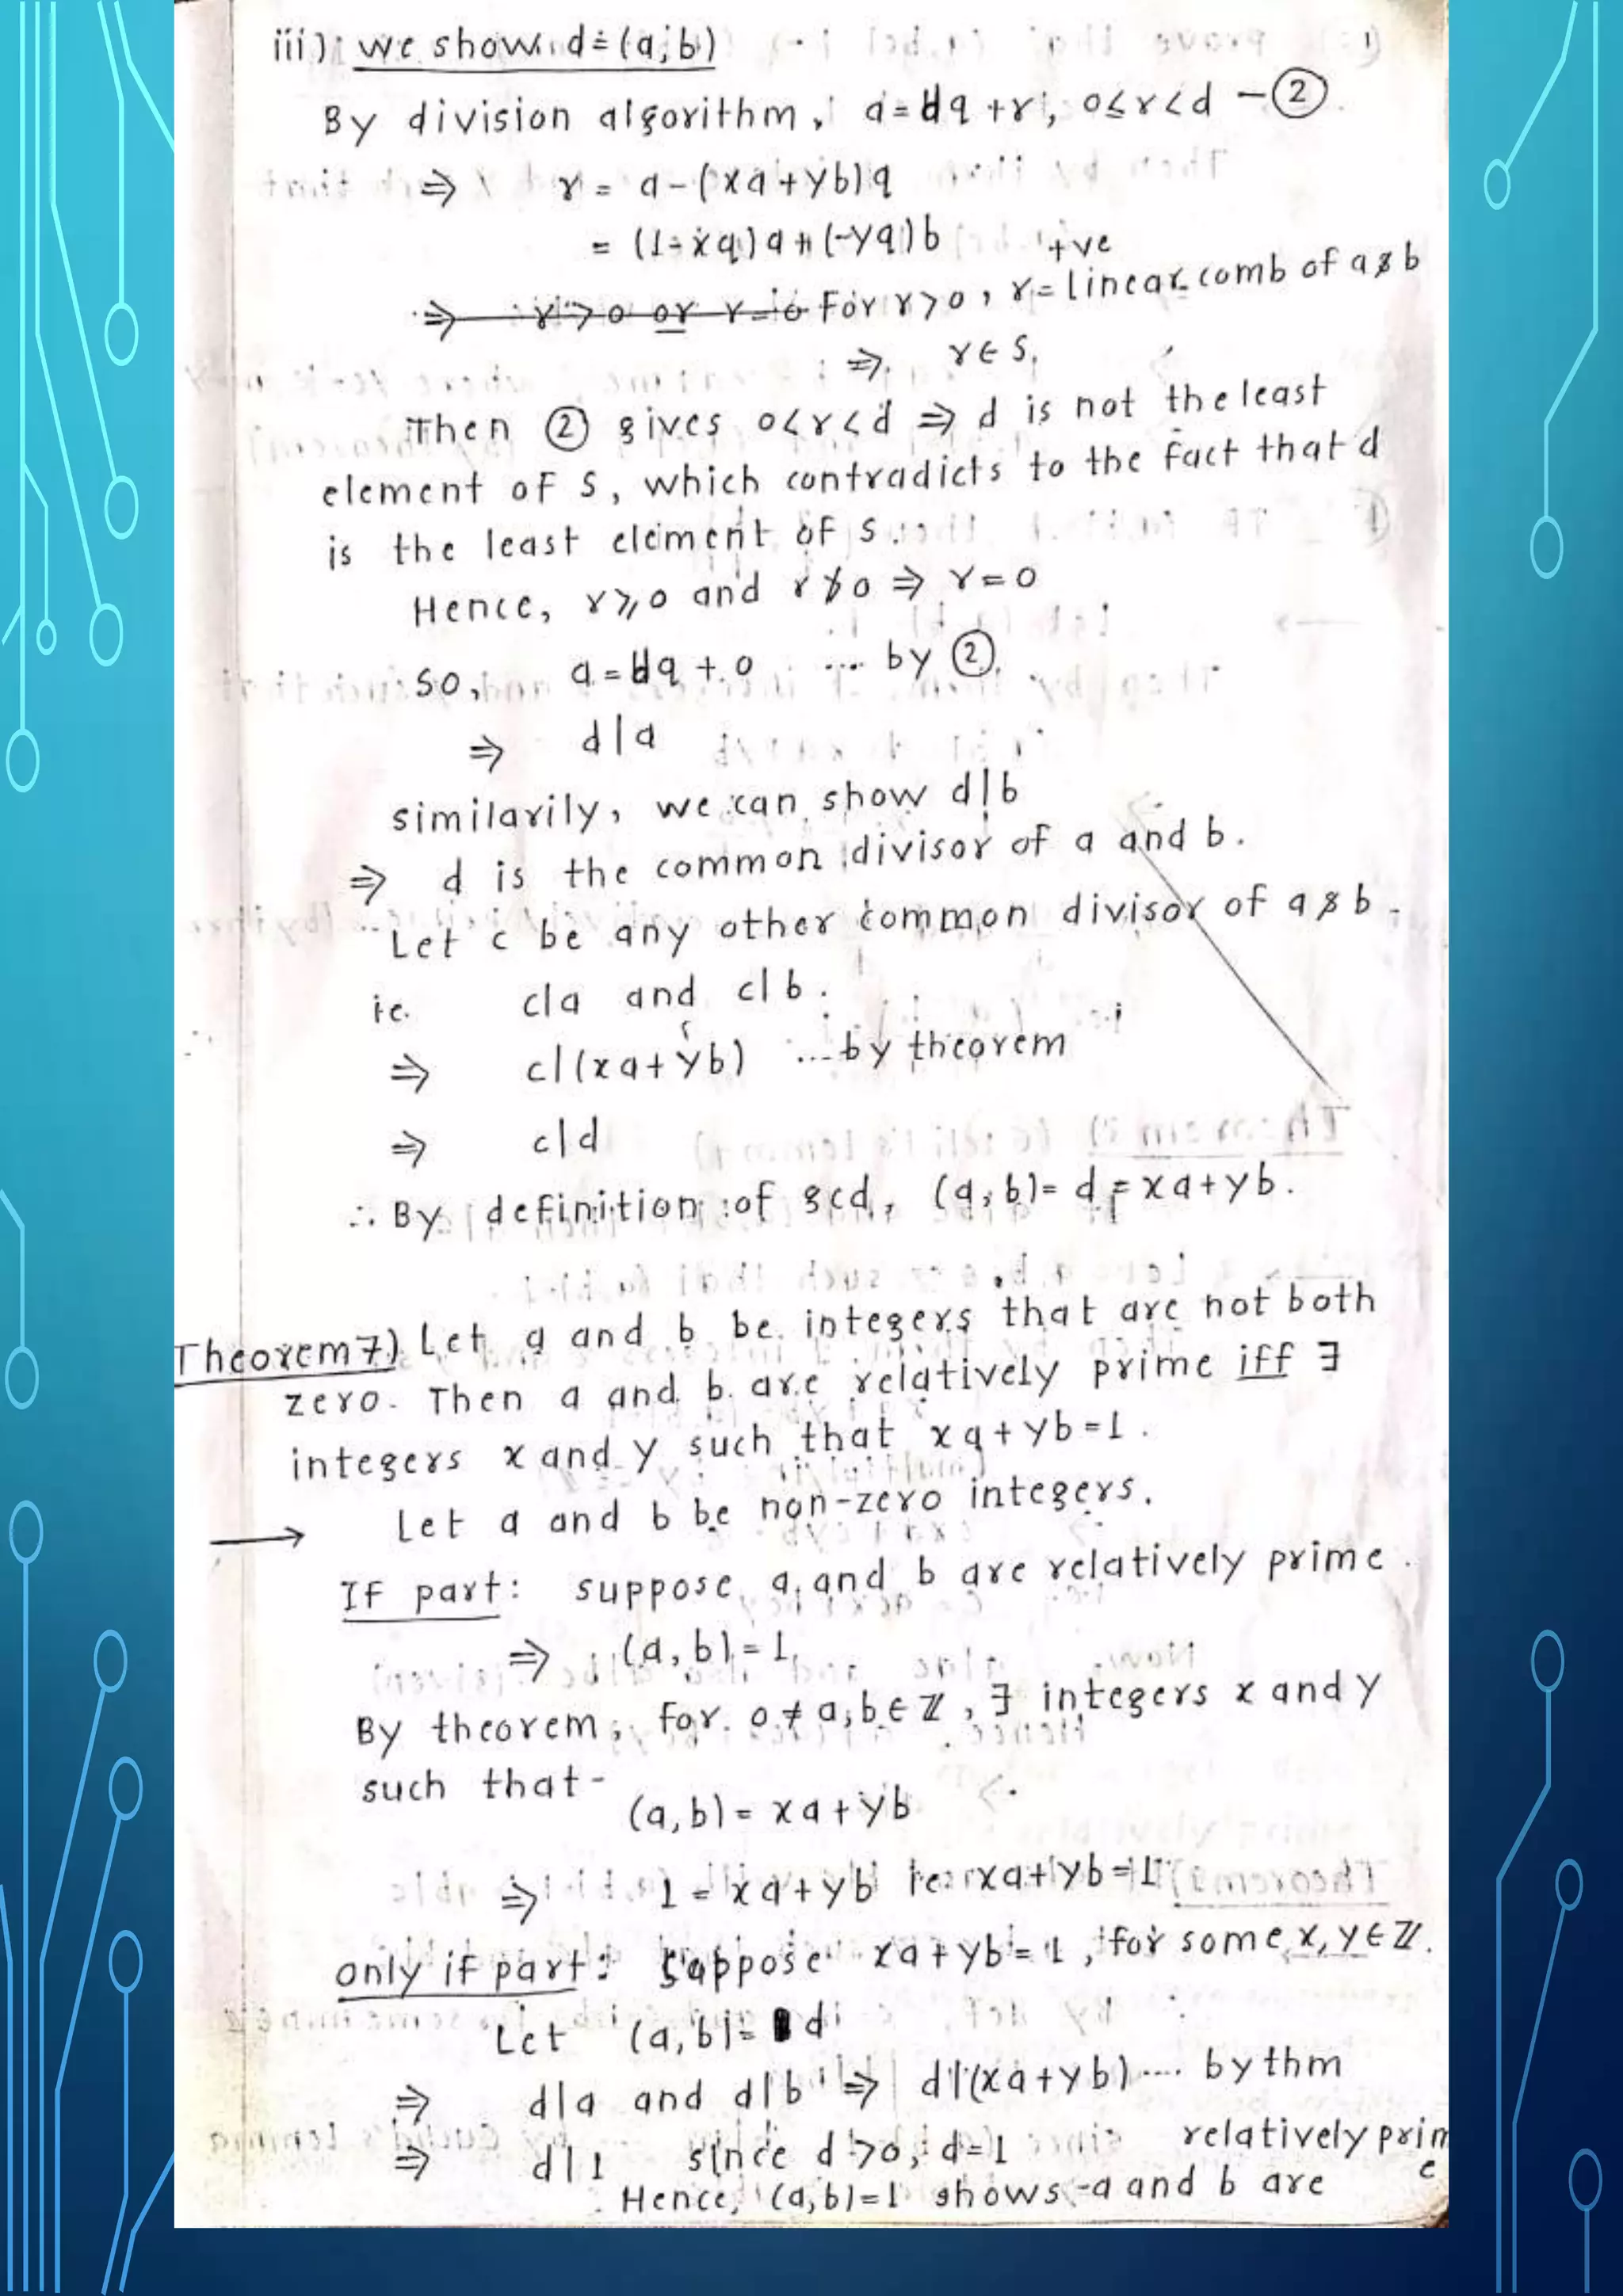 iii) we show d=(a,b)
By division algorithm, a=dq+r, 0≤r<d -②
⇒ r = a-(xa+yb)q
= (1-xq)a+(-yq)b
⇒ r>0 or r=0 For r>0, r= +ve linear comb of a & b
⇒ r∈S.
Then ② gives 0<r<d ⇒ d is not the least
element of S, which contradicts to the fact that d
is the least element of S.
Hence, r⩾0 and r≯0 ⇒ r=0
So, a=dq+0 .... by ②
⇒ d|a
similarily, we can show d|b
⇒ d is the common divisor of a and b.
Let c be any other common divisor of a & b.
ie. c|a and c|b.
⇒ c|(xa+yb) ....by theorem
⇒ c|d
∴ By definition of gcd, (a,b)=d=xa+yb.
Theorem 7) Let a and b be integers that are not both
zero. Then a and b are relatively prime iff ∃
integers x and y such that xa+yb=1.
→ Let a and b be non-zero integers.
If part: suppose a and b are relatively prime.
⇒ (a,b)=1
By theorem, for 0≠a,b∈ℤ, ∃ integers x and y
such that-
(a,b)=xa+yb
⇒ 1=xa+yb ie. xa+yb=1
only if part: Suppose xa+yb=1, for some x,y∈ℤ.
Let (a,b)=d
⇒ d|a and d|b ⇒ d|(xa+yb).... by thm
⇒ d|1 since d>0, d=1
Hence, (a,b)=1 shows a and b are relatively prime